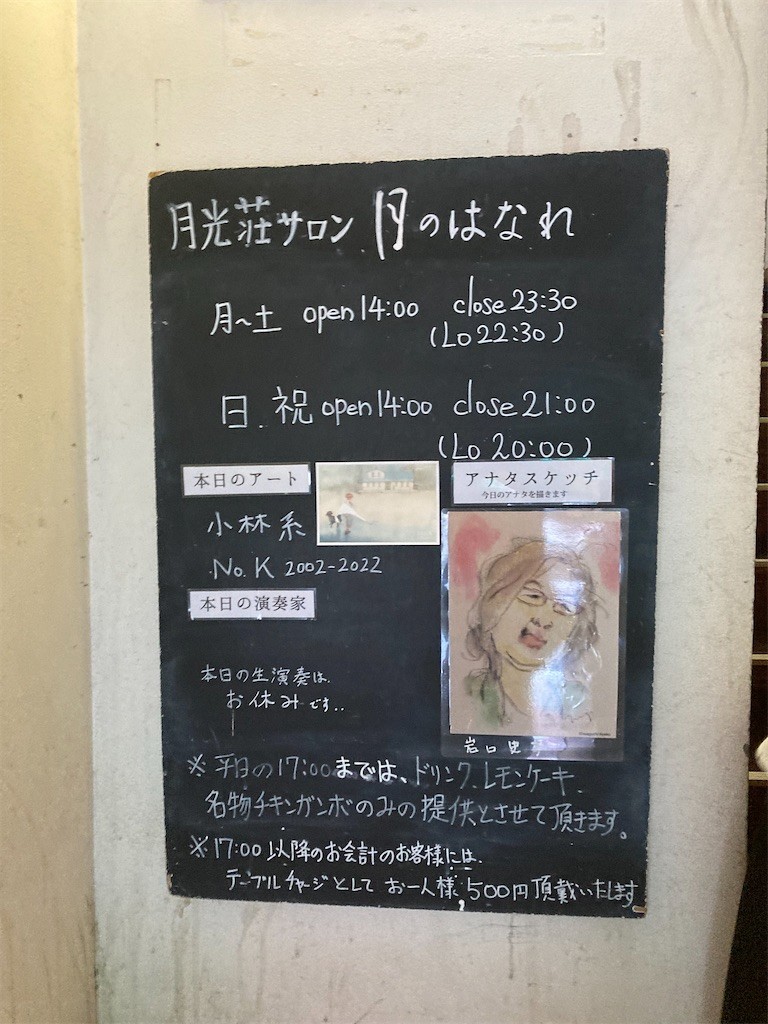 月光荘サロン 月のはなれ
月〜土 open 14:00 close 23:30
(Lo 22:30)
日.祝 open 14:00 close 21:00
(Lo 20:00)
本日のアート
小林系
No.K 2002-2022
アナタスケッチ
今日のアナタを描きます
本日の演奏家
本日の生演奏は、
お休みです..
岩口
※平日の17:00までは、ドリンク、レモンケーキ、
名物チキンガンボのみの提供とさせて頂きます。
※17:00以降のお会計のお客様には、
テーブルチャージとして お一人様、500円頂戴いたします